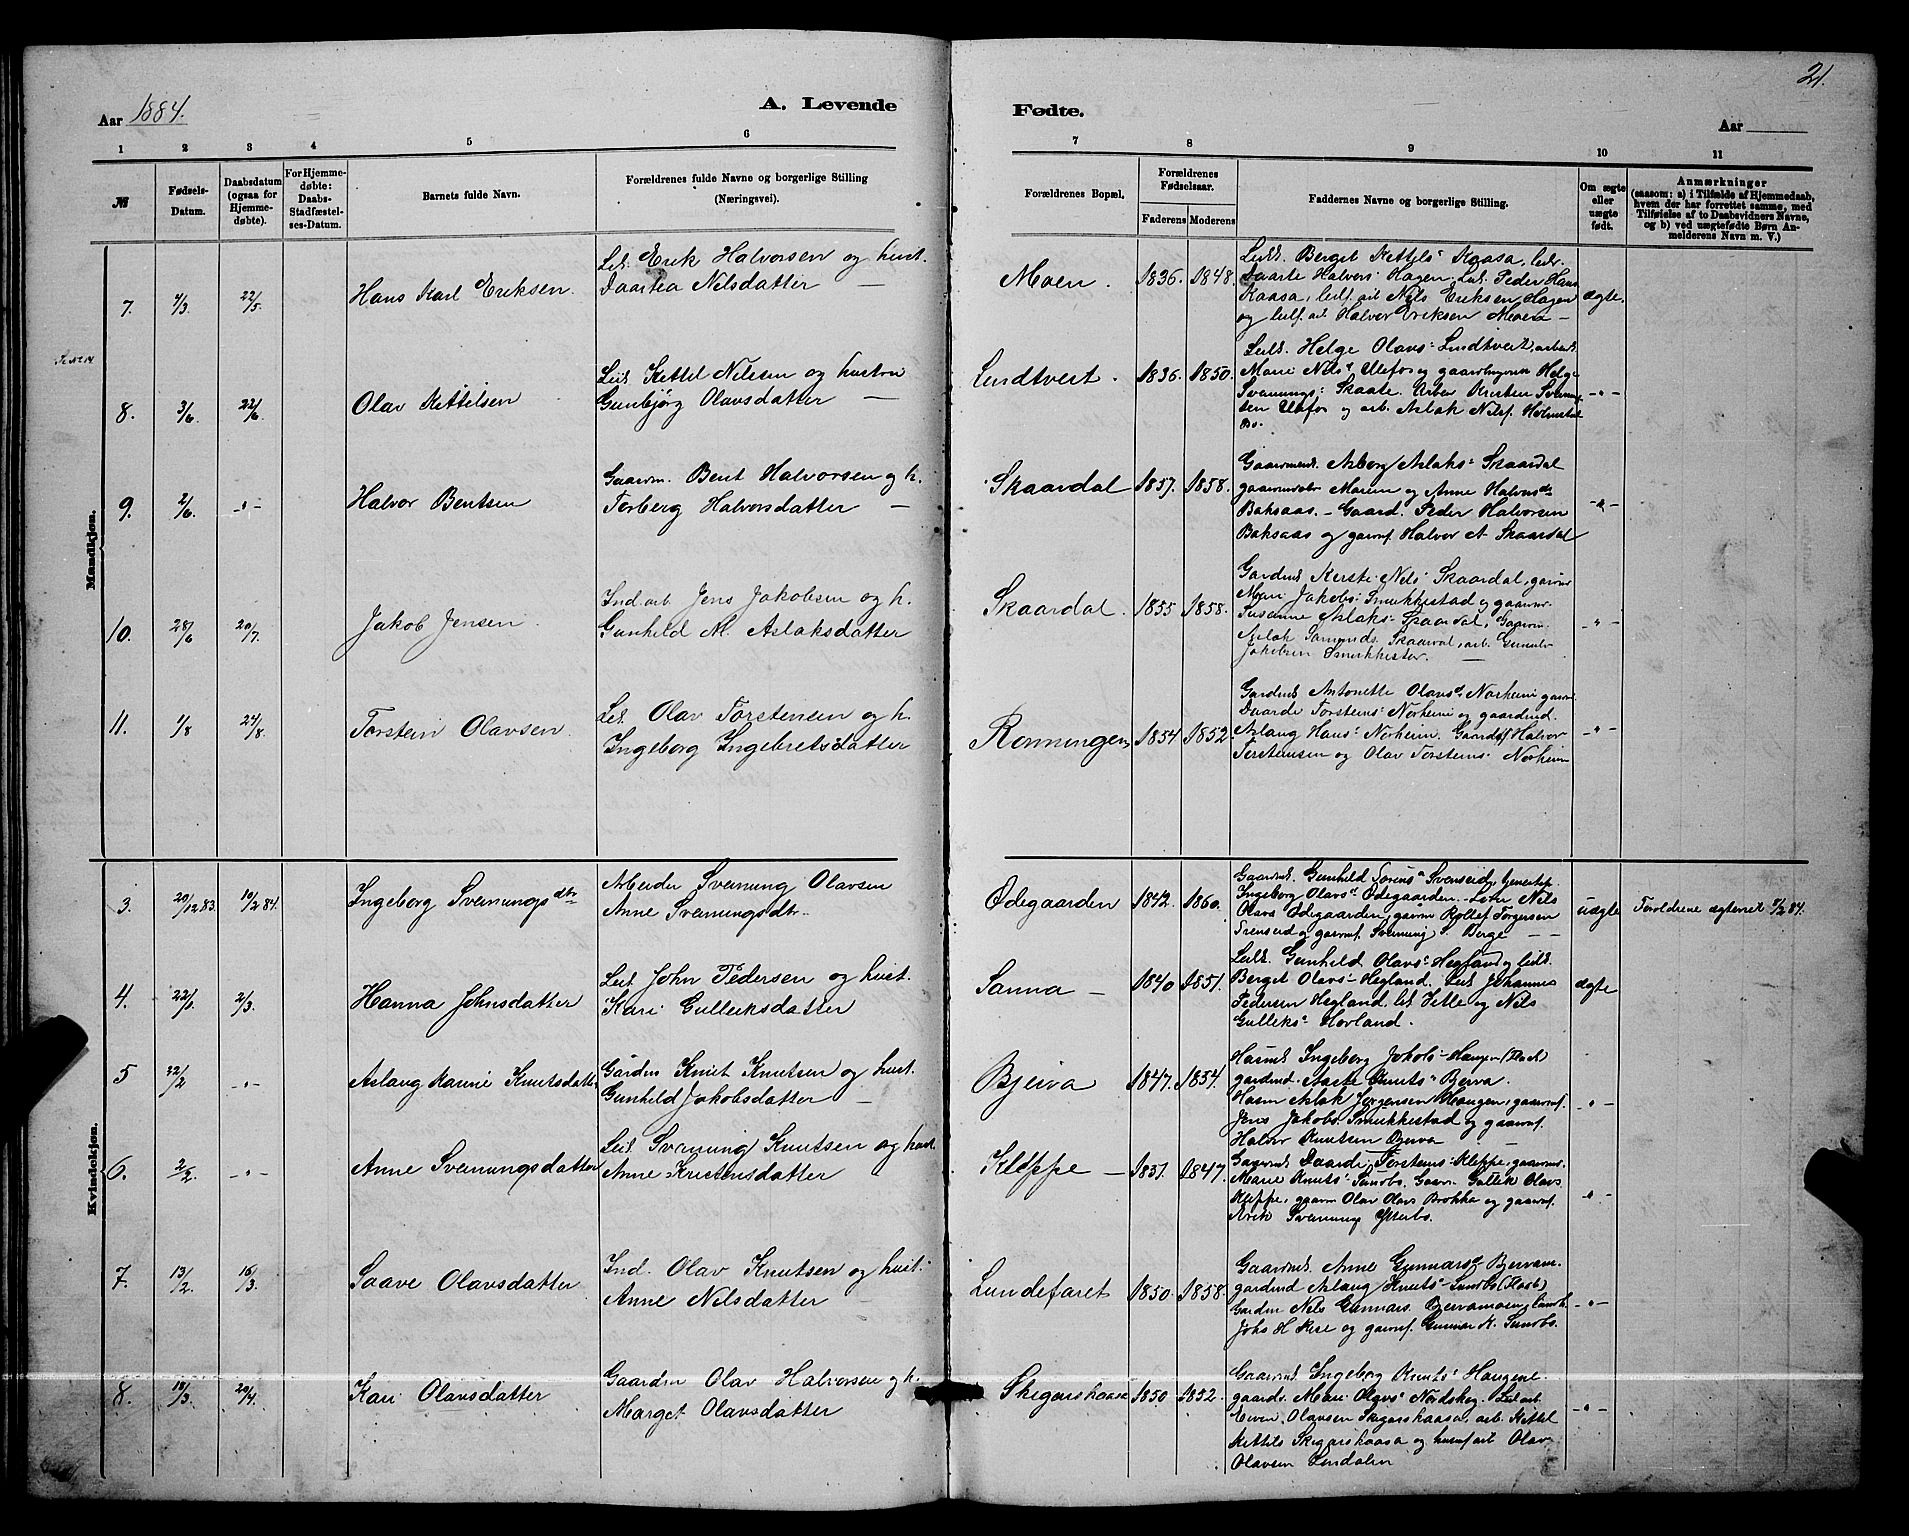 21.
Aar 1884.
A. Levende Fødte.
Aar
1 2 3 4 5 6 7 8 9 10 11
№
Fødsels-Datum.
Daabsdatum (ogsaa for Hjemme-døbte).
For Hjemme-døbte: Daabs-Stadfæstel-ses-Datum.
Barnets fulde Navn.
Forældrenes fulde Navne og borgerlige Stilling (Næringsvei).
Forældrenes Bopæl.
Forældrenes Fødselsaar.
Faderens Moderens
Faddernes Navne og borgerlige Stilling.
Om ægte eller uægte født.
Anmærkninger
(saasom: a) i Tilfælde af Hjemmedaab,
hvem der har forrettet samme, med
Tilføielse af to Daabsvidners Navne,
og b) ved uægtefødte Børn An-
melderens Navn m. V.)
Mandkjøn.
7. 4/3 22/5 Hans Karl Eriksen
Lei. Erik Halvorsen og hust.
Daartea Nilsdatter —
Moen. 1836. 1848.
Leilk. Berget Kettils Kaasa, leilk.
Daarte Halvors Hagen. Lei. Peder Hans
Kaasa, leilf. arb Nils Eriksen Hagen
og leilf. arb. Halvor Eriksen Moen —
ægte.
8. 3/6. 22/6. Olav Kittilsen
Lei. Kettel Nilsen og hustru
Gunbjørg Olavsdatter —
Lundtvert. 1836. 1850.
Leilk. Helge Olavs Lundtvert, arbeids.
Marie Nils Ulefos og gaardbrugerm Helge
Svennungs: Skaate. Arber Kristen Svenung
sen Ulefos og arb. Aslak Nilsf. Holmstad
Bø.
-"-
9. 2/6. -"- Halvor Bentsen
Gaarm. Bent Halvorsen og h.
Torberg Halvorsdatter —
Skaardal 1857. 1858.
Gaarmends. Asberg Aslaks Skaardal
Maren og Anne Halvorsdr
Baksaas. — Gaard. Peder Halvorsen
Baksaas og gaarmf. Halvor A Skaardal
-"-
10. 28/6 20/7. Jakob Jensen.
Ind. arb. Jens Jakobsen og h.
Gunhild M. Aslaksdatter
Skaardal. 1855 1858.
Gardmk Kerste Nils Skaardal, gaarm
Mari Jakobs Smukkestad og gaarm.
Susanne Aslaks Skaardal, Gaarm.
Aslak Samunds. Skaardal, arb. Gunulv
Jakobsen Smukkestad. —
-"-
11. 1/8 24/8. Torstein Olavsen.
Lei. Olav Torstensen og h.
Ingeborg Ingebretsdatter
Ronningen 1854 1852.
Gardmk Antonette Olavsd Norheim gaarm
Daarde Torstens Norheim og gaardmd.
Aslaug Hans Norheim. Gaardm Halvor
Torstensen og Olav Torstens Norheim
-"-
Kvindekjøn.
3. 20/12 83. 10/2 84. Ingeborg Sveinungsdtr
Arbeider Sveinung Olavsen
Anne Sveinungsdtr.
Ødegaarden 1842. 1860.
Gaarmk. Gunhild Torens Svenseid,
Ingeborg Olavs Ødegaarden. Nils
Olavs Ødegaarden, gaarm Rollef Torgersen
Svenseid og gaarmf. Sveinung S. Berge —
uægte
Foreldrene ægteviet 9/2 84.
4. 22/1. 2/3. Hanna Johnsdatter
Lei. John Pedersen og hust.
Kari Gulleiksdatter
Sanna — 1840 1851.
Leilk. Gunhild Olavs Hegland og leilk.
Berget Olavs Hegland. Lei Johannes
Pedersen Hegland, lei. Tette og Nils
Gulleiks Hovland.
ægte
5 22/2 -"- Aslaug Karine Knutsdatter
Gårdm Knut Knutsen og hust.
Gunhild Jakobsdatter —
Bjerva 1847. 1854.
Husmk Ingeborg Jakobs Haugen
gardmd. Aaste Knuts Bjerva.
Husm Aslak Jorgensen Haugen, gaarmf.
Jens Jakobs. Smukkestad og gaarmf.
Halvor Knutsen Bjerva —
-"-
6. 2/2. -"- Anne Sveinungsdatter
Lei. Sveinung Knutsen og hust.
Anne Kristensdatter
Kleppe — 1831. 1847.
Gaarmk Daarde Torstens Kleppe, gaarm.
Marie Knuts Sundbø. Gaarm. Gullik Olavs
Kleppe, gaarm Olav Olavs Brokka og gaarmf.
Sveinung Ytterbø.
-"-
7. 13/2. 16/3. Saave Olavsdatter
Ind. Olav Knutsen og hust.
Anne Nilsdatter —
Lundefaret 1850. 1858.
Gaarmk. Anne Gunnarsd Bjervam.
gardmd Aslaug Knuts Sundbø
Gardm Nils Gunnars. Bjervamoen,
Johs H Kise og gaarmf. Gunnar K. Sundbø.
-"-
8. 18/3. 20/4. Kari Olavsdatter
Gaardm Olav Halvorsen og h.
Marget Olavsdatter —
Skegarskaasa 1850 1852.
Gaarmk. Ingeborg Knuts Haugene
gaardm. Mari Olavs Nordskog. Lei arb.
Eiven Olavsen Skigarskaasa, arb. Kittil
Kittils Skigarskaasa og husmf arb Olav
Olavsen Lindalen
-"-